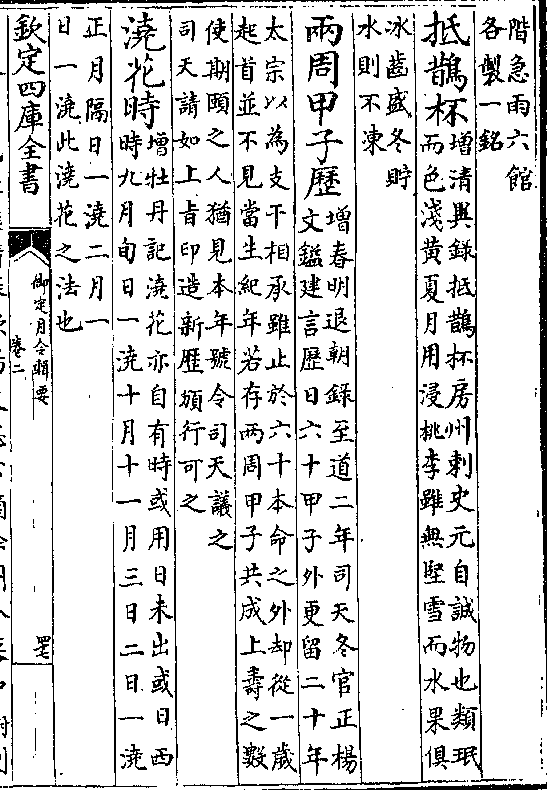 階急雨六館
各製一銘
抵鵲杯
增清異錄抵鵲杯房州刺史元自誠物也類珉
而色淺黃夏月用浸桃李雖無堅雪而水果俱
冰齒盛冬貯
水則不凍
兩周甲子歷
增春明退朝錄至道二年司天冬官正楊
文鎰建言歷日六十甲子外更留二十年
太宗以為支干相承雖止於六十本命之外却從一歲
起首並不見當生紀年若存兩周甲子共成上壽之數
使期頤之人猶見本年號令司天議之
司天請如上旨印造新歷頒行可之
澆花時
增牡丹記澆花亦自有時或用日未出或日西
時九月旬日一澆十月十一月三日二日一澆
正月隔日一澆二月一
日一澆此澆花之法也
欽定四庫全書
御定月令輯要
卷二